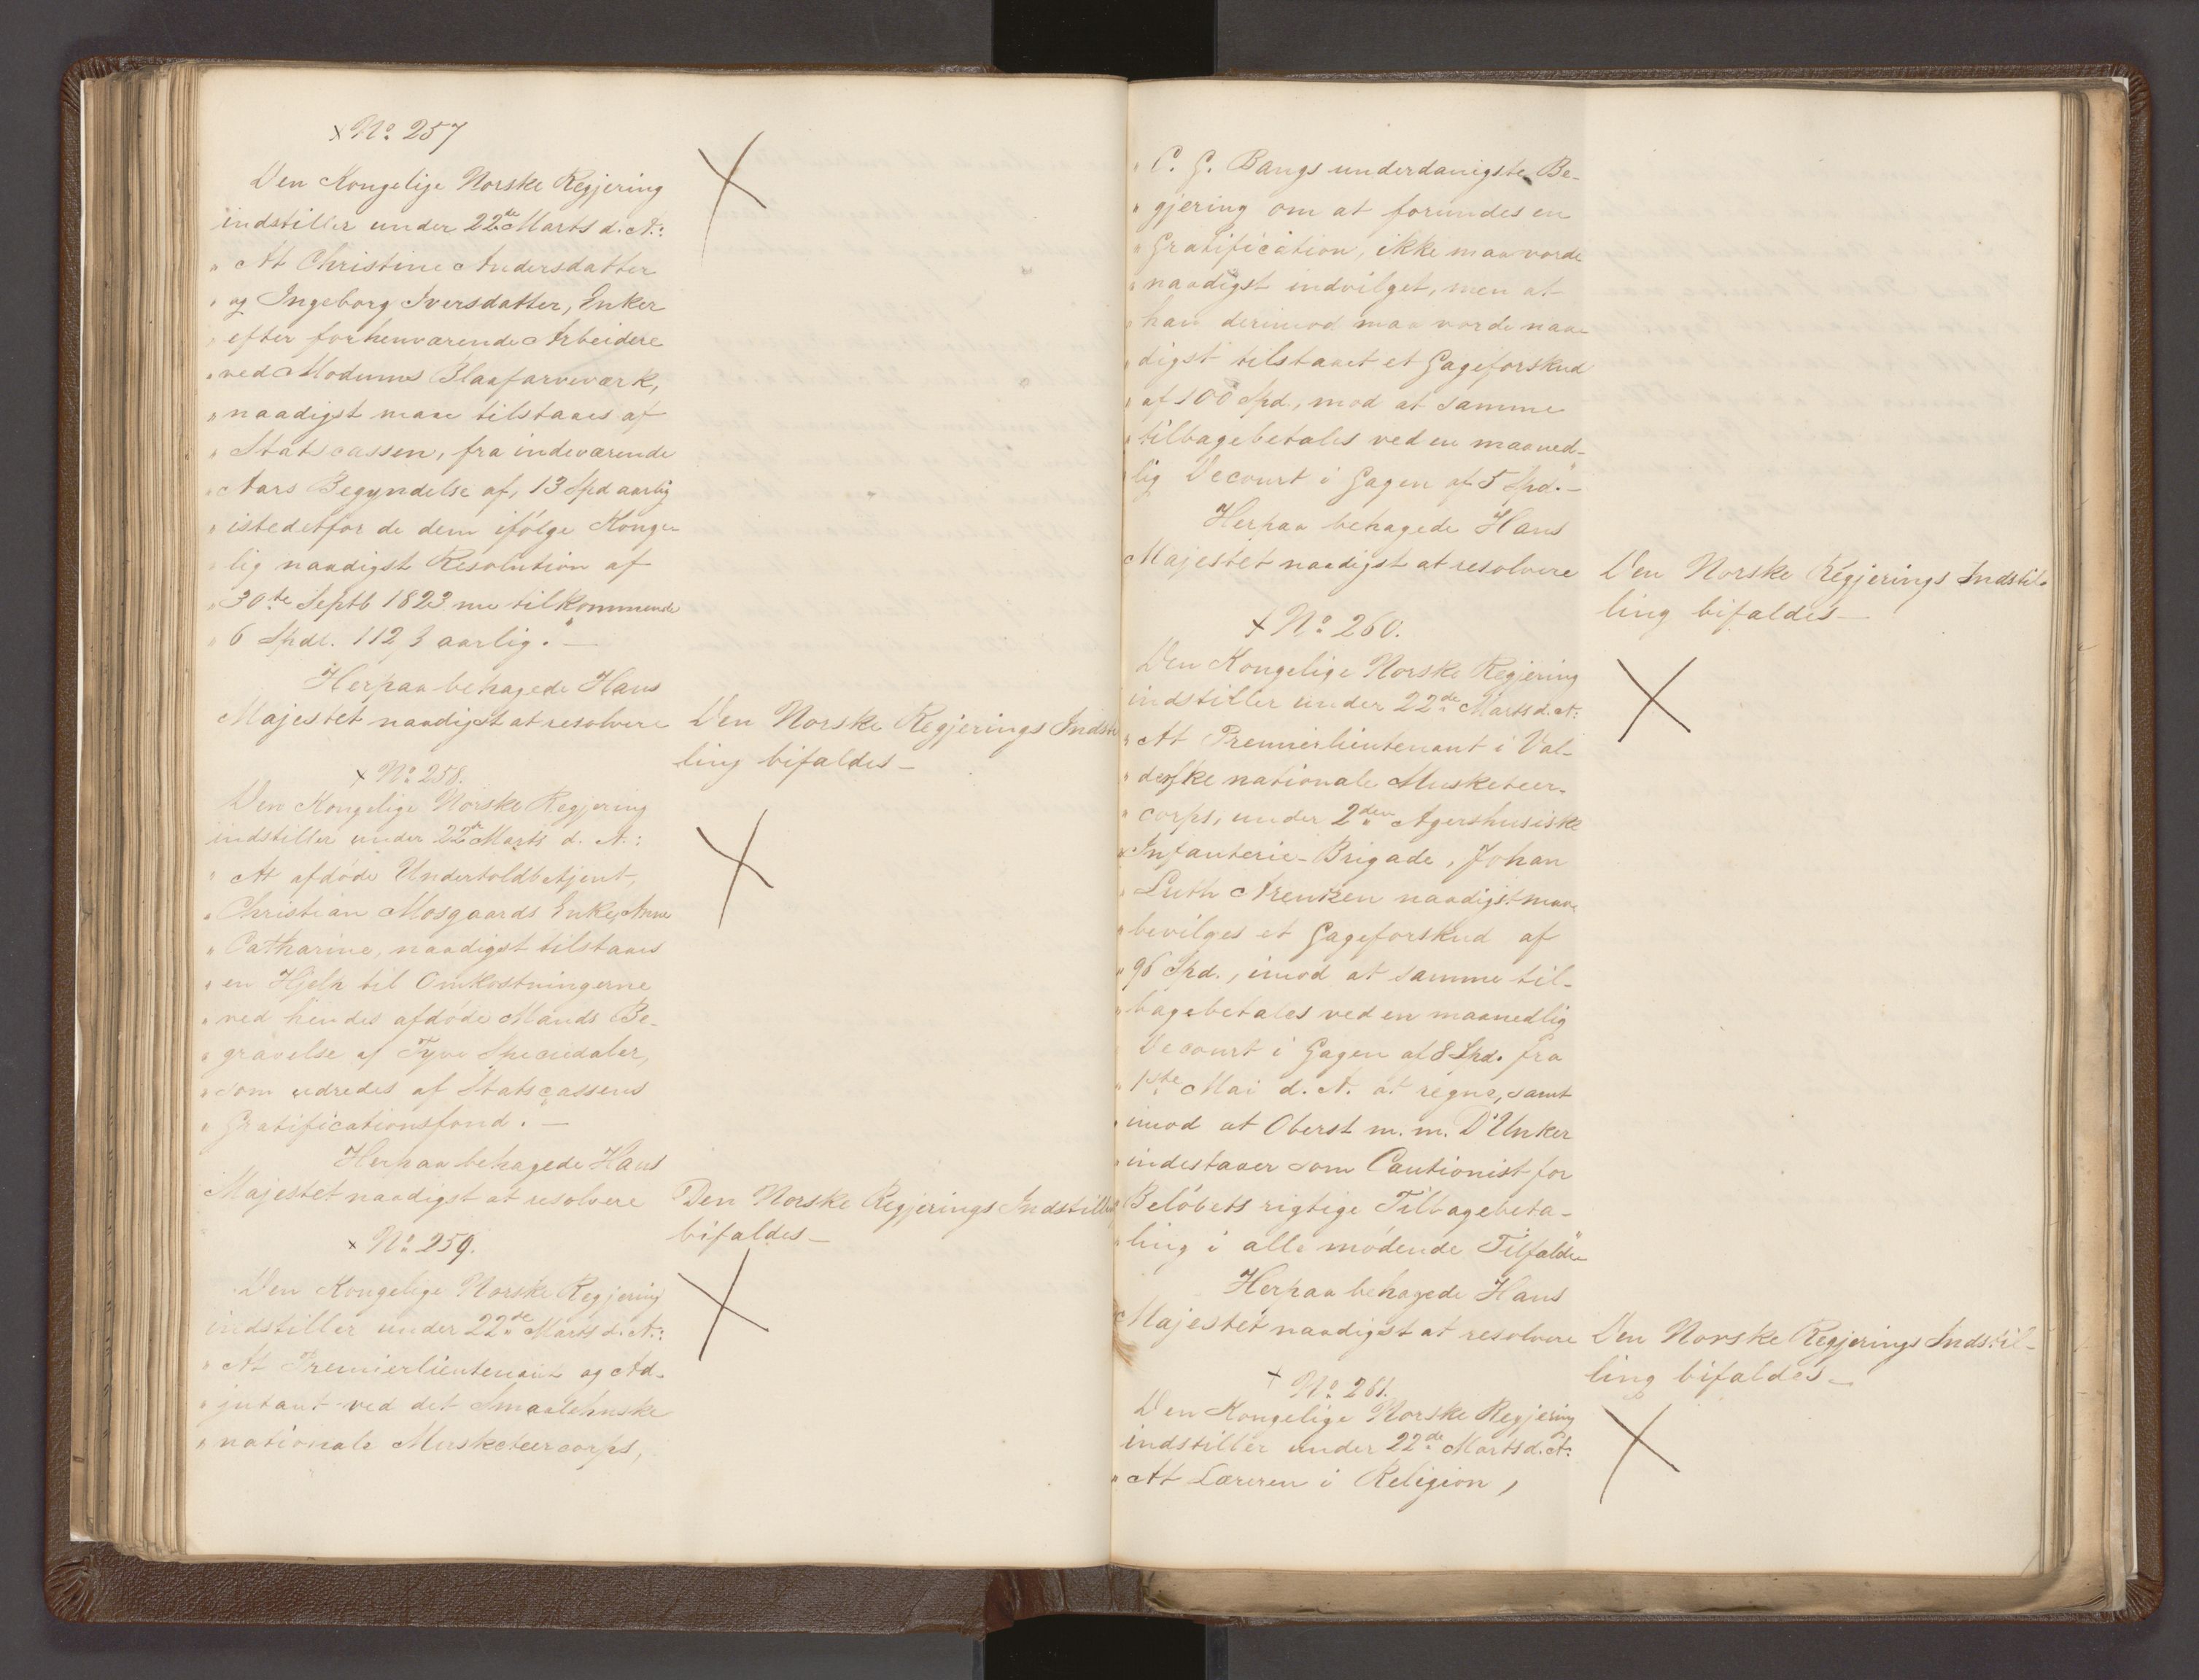 x No 257
Den Kongelige Norske Regjering
indstiller under 22de Marts d. A.:
" At Christine Andersdatter
" og Ingeborg Iversdatter, Enker
" efter forhenværende Arbeidere
" ved Modums Blaafarveværk,
" naadigst maae tilstaaes af
" Statscassen, fra indeværende
" Aars Begyndelse af, 13 Spd aarlig
" istedetfor de dem ifölge Konge-
" lig naadigst Resolution af
" 30te Septb 1823 nu tilkommende
" 6 Spdl. 112 3 aarlig." —
Herpaa behagede Hans
Majestet naadigst at resolvere
Den Norske Regjerings Indstil
ling bifaldes —
x No 258.
Den Kongelige Norske Regjering
indstiller under 22de Marts d. A.:
" At afdöde Undertoldbetjent,
" Christian Mosgaards Enke, Anne
" Catharine, naadigst tilstaaes
" en Hjelp til Omkostningerne
" ved hendes afdöde Mands Be-
" gravelse af Tyve Speciedaler,
" som udredes af Statscassens
" Gratificationsfond." —
Herpaa behagede Hans
Majestet naadigst at resolvere
Den Norske Regjerings Indstilling
bifaldes —
x No 259.
Den Kongelige Norske Regjering
indstiller under 22de Marts d. A.:
" At Premierlieutenant og Ad-
" jutant ved det Smaalehnske
" nationale Musketeercorps,
" C. G. Bangs underdanigste Be-
" gjering om at forundes en
" Gratification, ikke maa vorde
" naadigst indvilget, men at
" han derimod maa vorde naa-
" digst tilstaaet et Gageforskud
" af 100 Spd., mod at samme
" tilbagebetales ved en maaned-
" lig Decourt i Gagen af 5 Spd." —
Herpaa behagede Hans
Majestet naadigst at resolvere
Den Norske Regjerings Indstil-
ling bifaldes —
x No 260.
Den Kongelige Norske Regjering
indstiller under 22de Marts d. A:
" At Premierlieutenant i Val-
" derske nationale Musketeer-
" corps, under 2den Agershusiske
" Infanterie-Brigade, Johan
" Luth naadigst maae
" bevilges et Gageforskud af
" 96 Spd., imod at samme til-
" bagebetales ved en maanedlig
" Decourt i Gagen af 8 Spd. fra
" 1ste Mai d. A. at regne, samt
" imod at Oberst m. m. D'Unker
" indestaaer som Cautionist for
" Belöbets rigtige Tilbagebeta-
" ling i alle mödende Tilfælde"
Herpaa behagede Hans
Majestet naadigst at resolvere
Den Norske Regjerings Indstil-
ling bifaldes —
x No 261.
Den Kongelige Norske Regjering
indstiller under 22de Marts d. A:
" At Læreren i Religion,